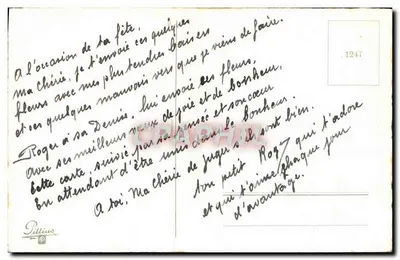 A l'occasion de ta fête,
ma chérie, je t'envoie ces quelques
fleurs avec mes plus tendres baisers
et ces quelques mauvais vers que je viens de faire.
Roger à sa Denise, lui envoie des fleurs,
Avec ses meilleurs vœux de joie et de bonheur,
Cette carte, aussi, par sa pensée et son cœur
En attendant d'être unis dans le bonheur.
A toi, Ma chérie de juger s'ils sont bien.
ton petit Rog, qui t'adore
et qui t'aime chaque jour
d'avantage.
1247